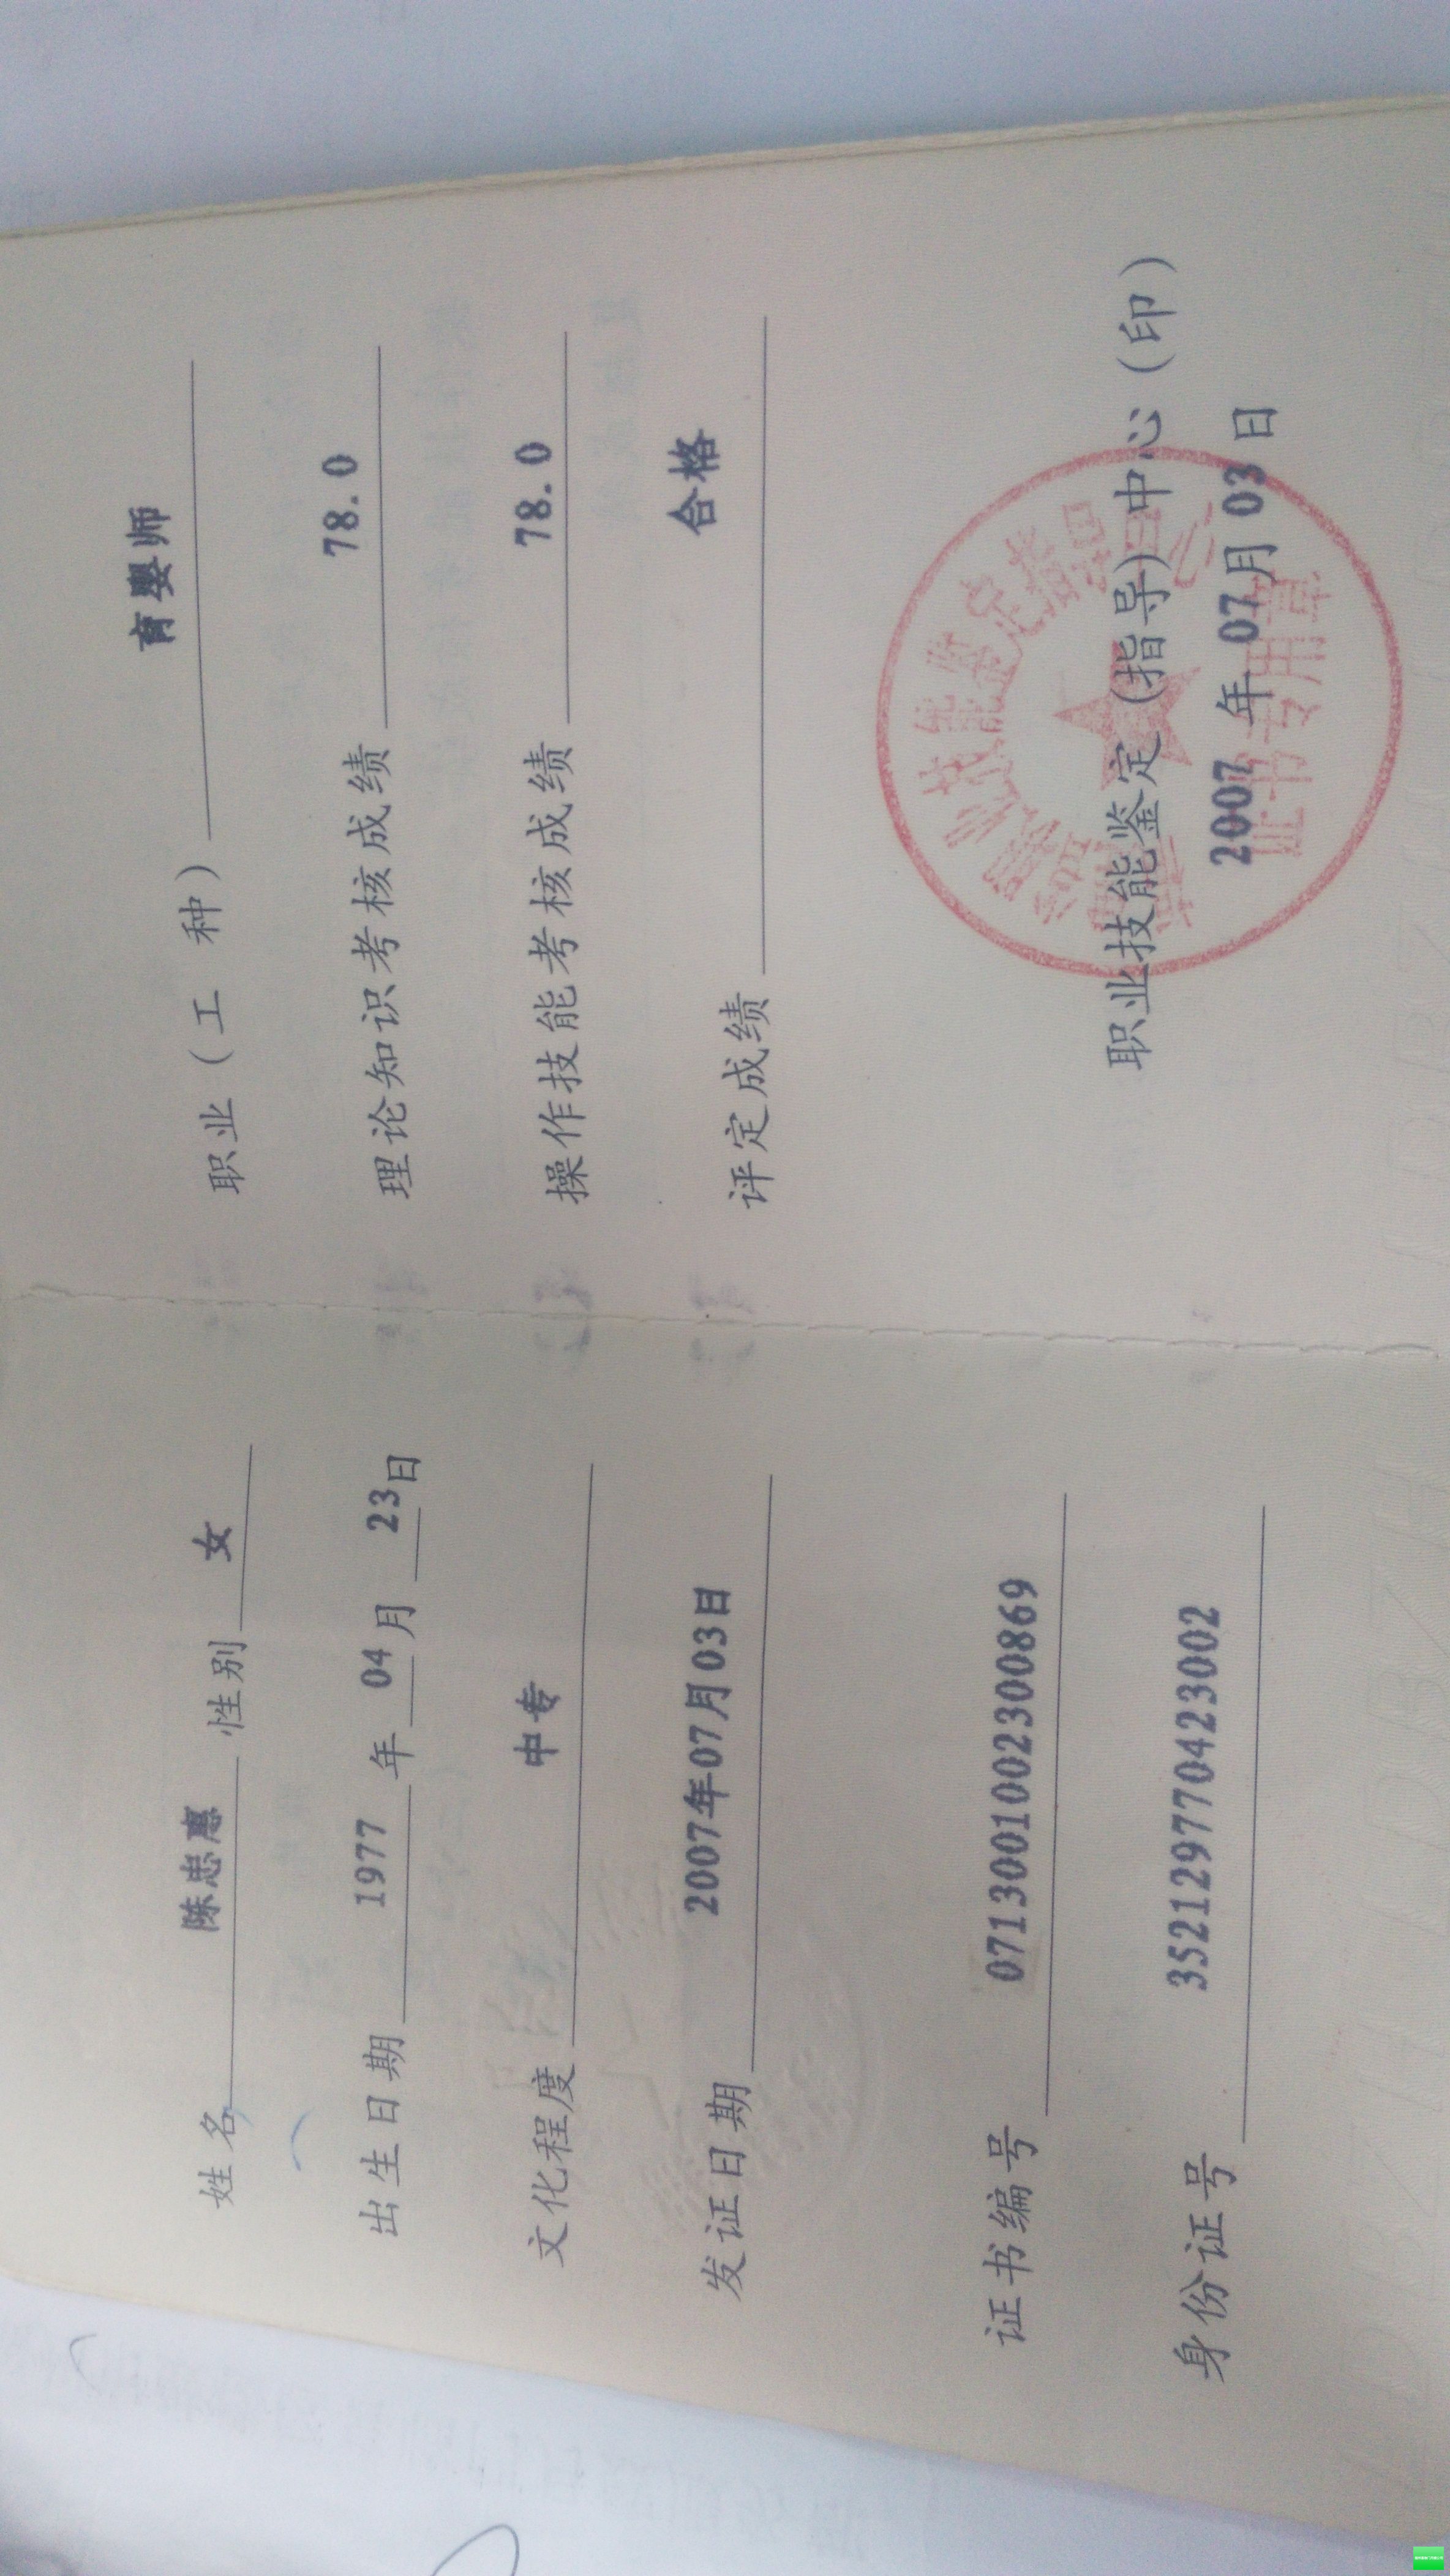 姓名 陈忠惠 性别 女
出生日期 1977 年 04 月 23 日
文化程度 中专
发证日期 2007年07月03日
证书编号 0713001002300869
身份证号 352129770423002
职业（工种） 育婴师
理论知识考核成绩 78.0
操作技能考核成绩 78.0
评定成绩 合格
职业技能鉴定（指导）中心（印）
2007 年 07 月 03 日
证书专用章